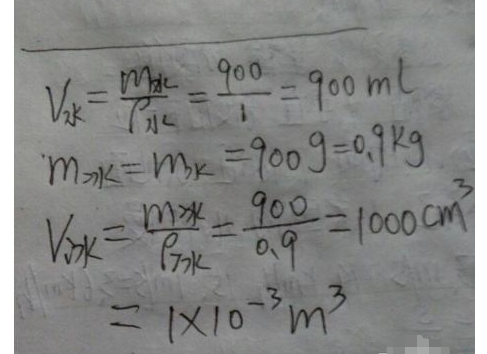 V水=m水/ρ水=900/1=900ml
m冰=m水=900g=0.9kg
V冰=m冰/ρ冰=900/0.9=1000cm³
=1×10⁻³m³